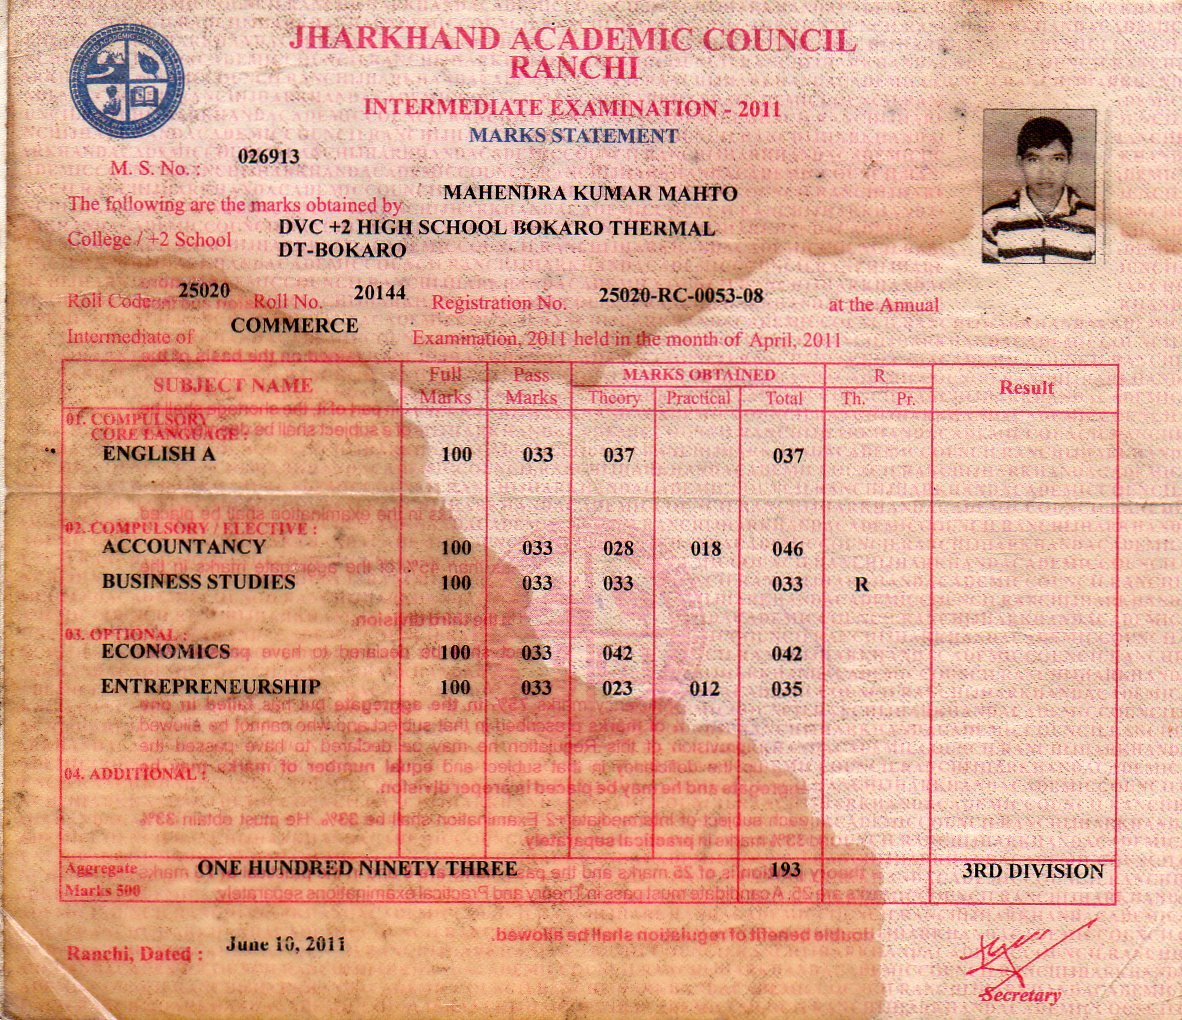 JHARKHAND ACADEMIC COUNCIL
RANCHI
INTERMEDIATE EXAMINATION - 2011
MARKS STATEMENT
M. S. No. : 026913
The following are the marks obtained by MAHENDRA KUMAR MAHTO
College / +2 School DVC +2 HIGH SCHOOL BOKARO THERMAL
DT-BOKARO
Roll Code 25020 Roll No. 20144 Registration No. 25020-RC-0053-08 at the Annual
Intermediate of COMMERCE Examination, 2011 held in the month of April, 2011
SUBJECT NAME Full Marks Pass Marks MARKS OBTAINED R Result
Theory Practical Total Th. Pr.
01. COMPULSORY
CORE LANGUAGE :
ENGLISH A 100 033 037 037
02. COMPULSORY / ELECTIVE :
ACCOUNTANCY 100 033 028 018 046
BUSINESS STUDIES 100 033 033 033 R
03. OPTIONAL :
ECONOMICS 100 033 042 042
ENTREPRENEURSHIP 100 033 023 012 035
04. ADDITIONAL :
Aggregate ONE HUNDRED NINETY THREE 193 3RD DIVISION
Marks 500
Ranchi, Dated : June 10, 2011
Secretary